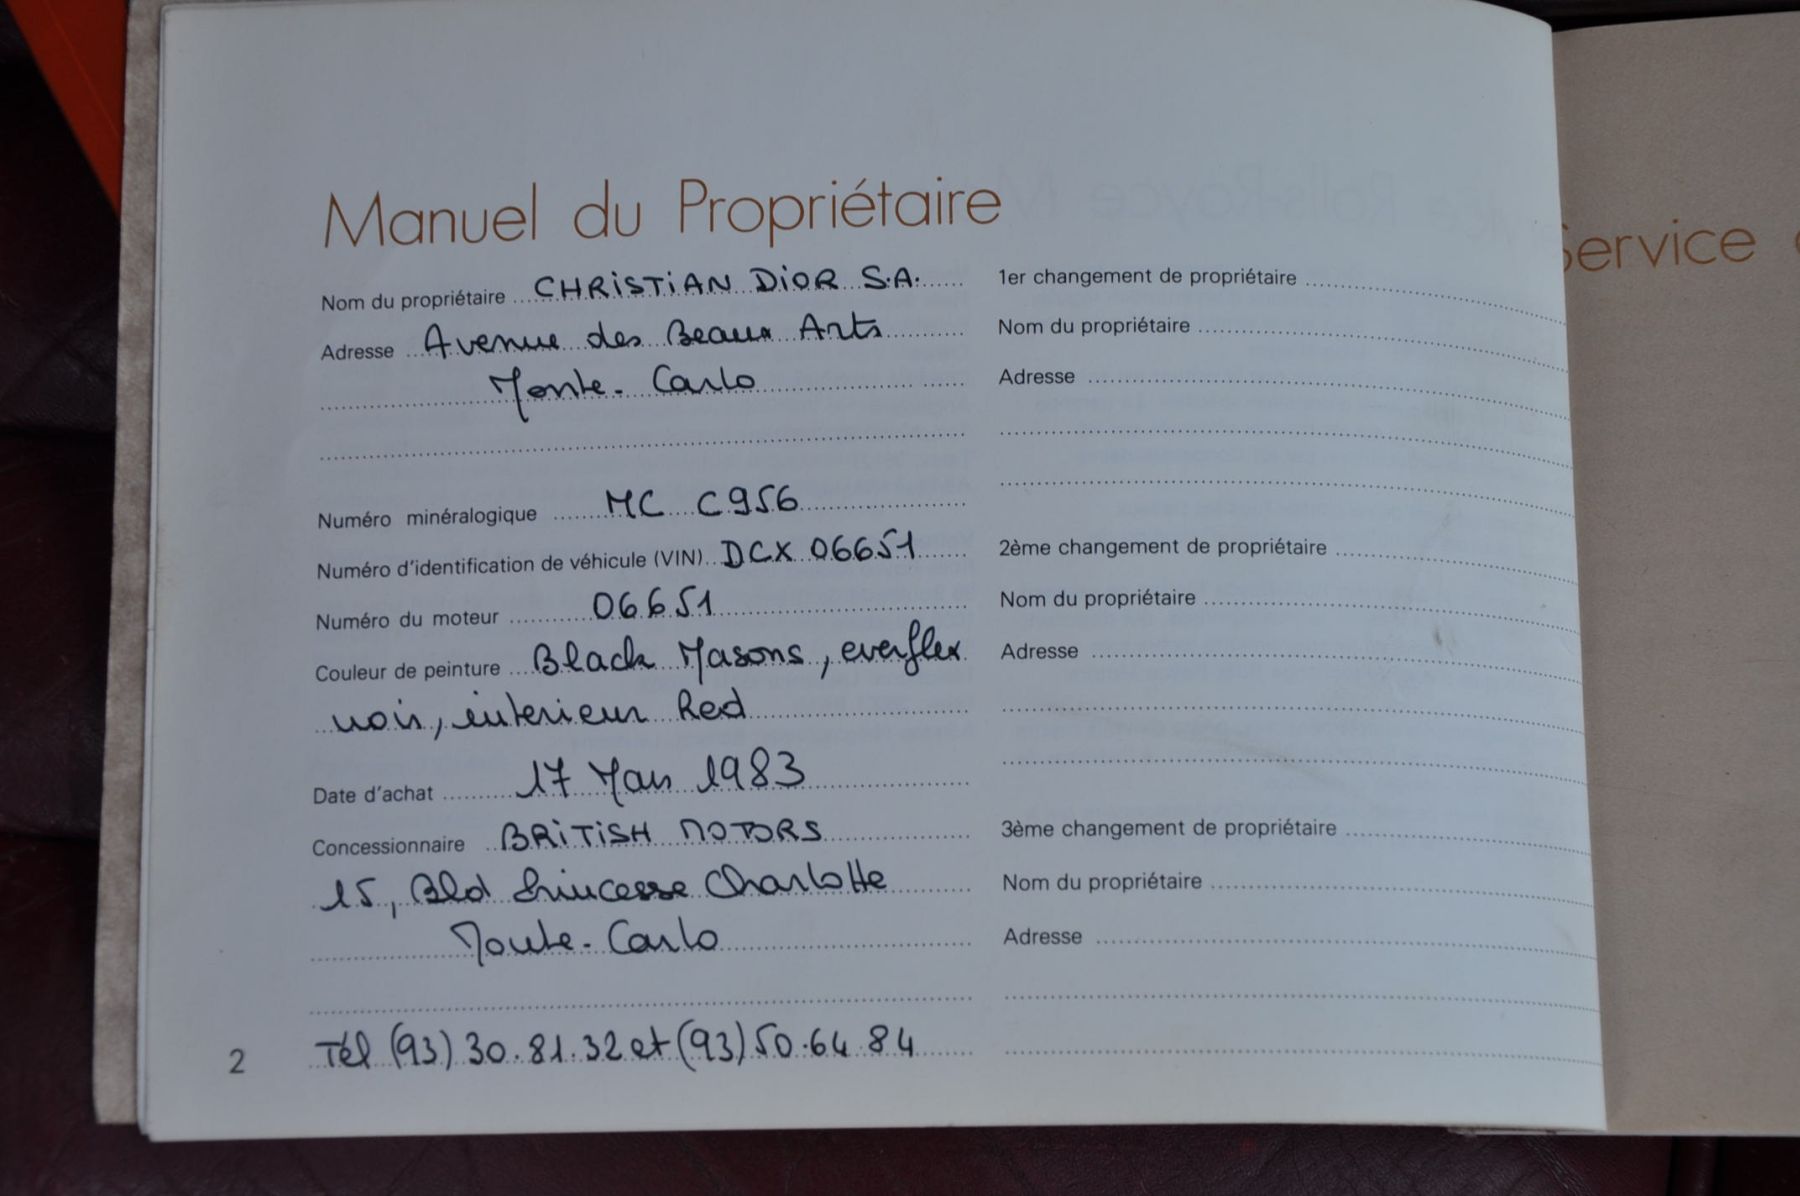 Manuel du Propriétaire
Nom du propriétaire CHRISTIAN DIOR S.A.
Adresse Avenue des Beaux Arts
Monte-Carlo
Numéro minéralogique MC C956
Numéro d'identification de véhicule (VIN) DCX 06651
Numéro du moteur 06651
Couleur de peinture Black Masons, everflex
noir, intérieur Red
Date d'achat 17 Mars 1983
Concessionnaire BRITISH MOTORS
15, Bld Princesse Charlotte
Monte-Carlo
Tél (93) 30.81.32 et (93) 50.64 84
2
1er changement de propriétaire
Nom du propriétaire
Adresse
2ème changement de propriétaire
Nom du propriétaire
Adresse
3ème changement de propriétaire
Nom du propriétaire
Adresse
Service